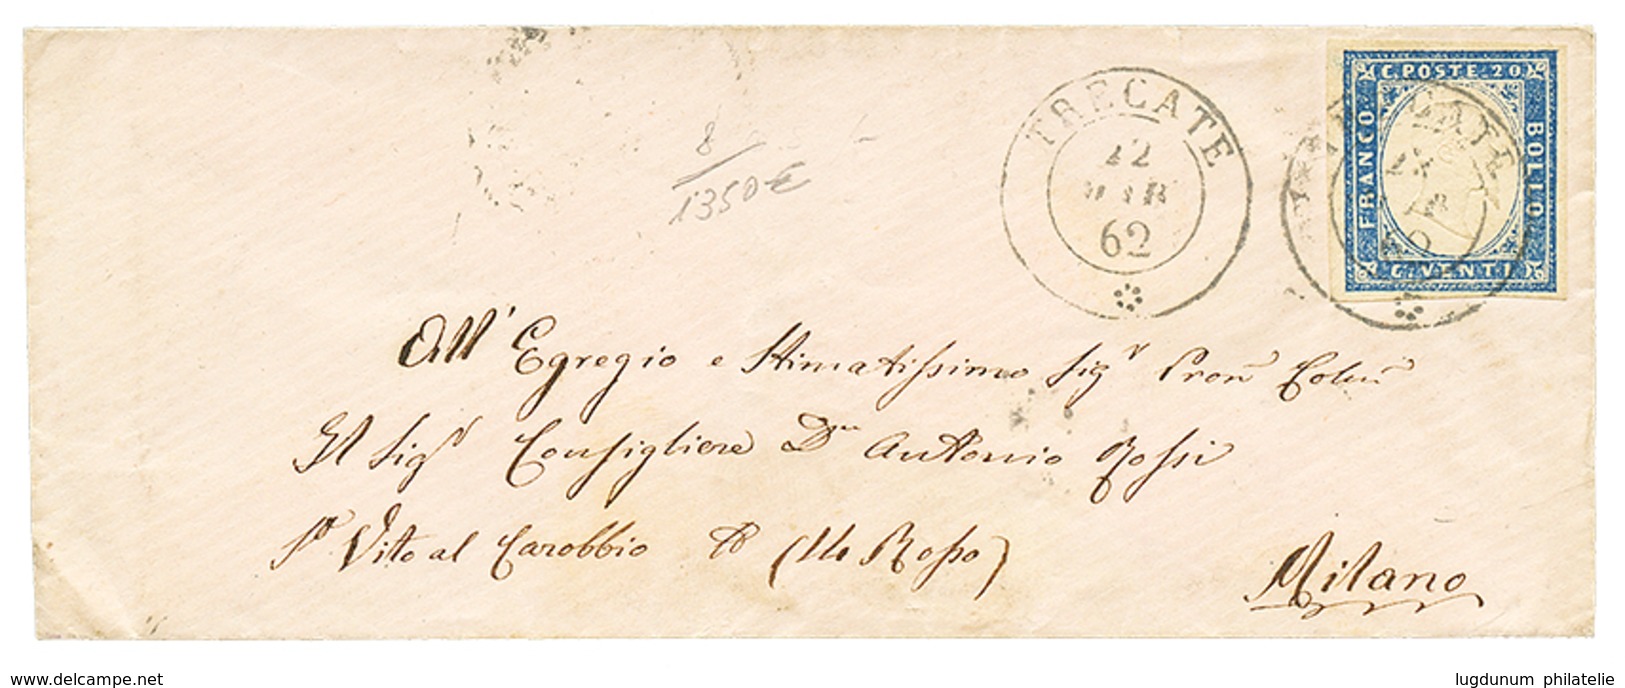 C. POSTE. 20
FRANCO
BOLLO
C. VENTI
TRECATE
22
MAR
62
8
1350€
All' Egregio e Stimatissimo Sigr Pron Colmo
Il Sigr Consigliere Dn Antonio Rossi
Sn Vito al Carobbio
Rosso)
Milano
www.delcampe.net
lugdunum philatelie